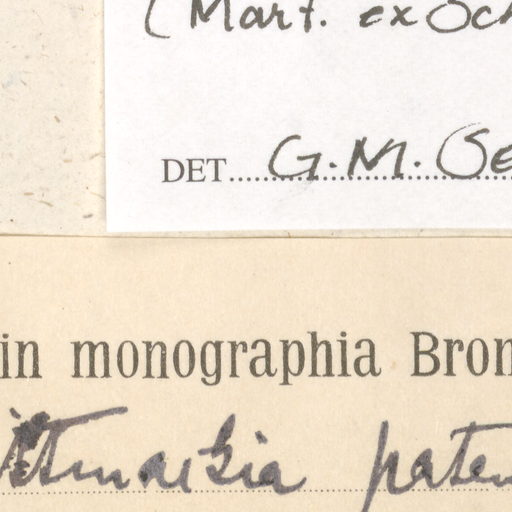 (Mart. ex Sch
DET...... G.M. Se
in monographia Bron
paten